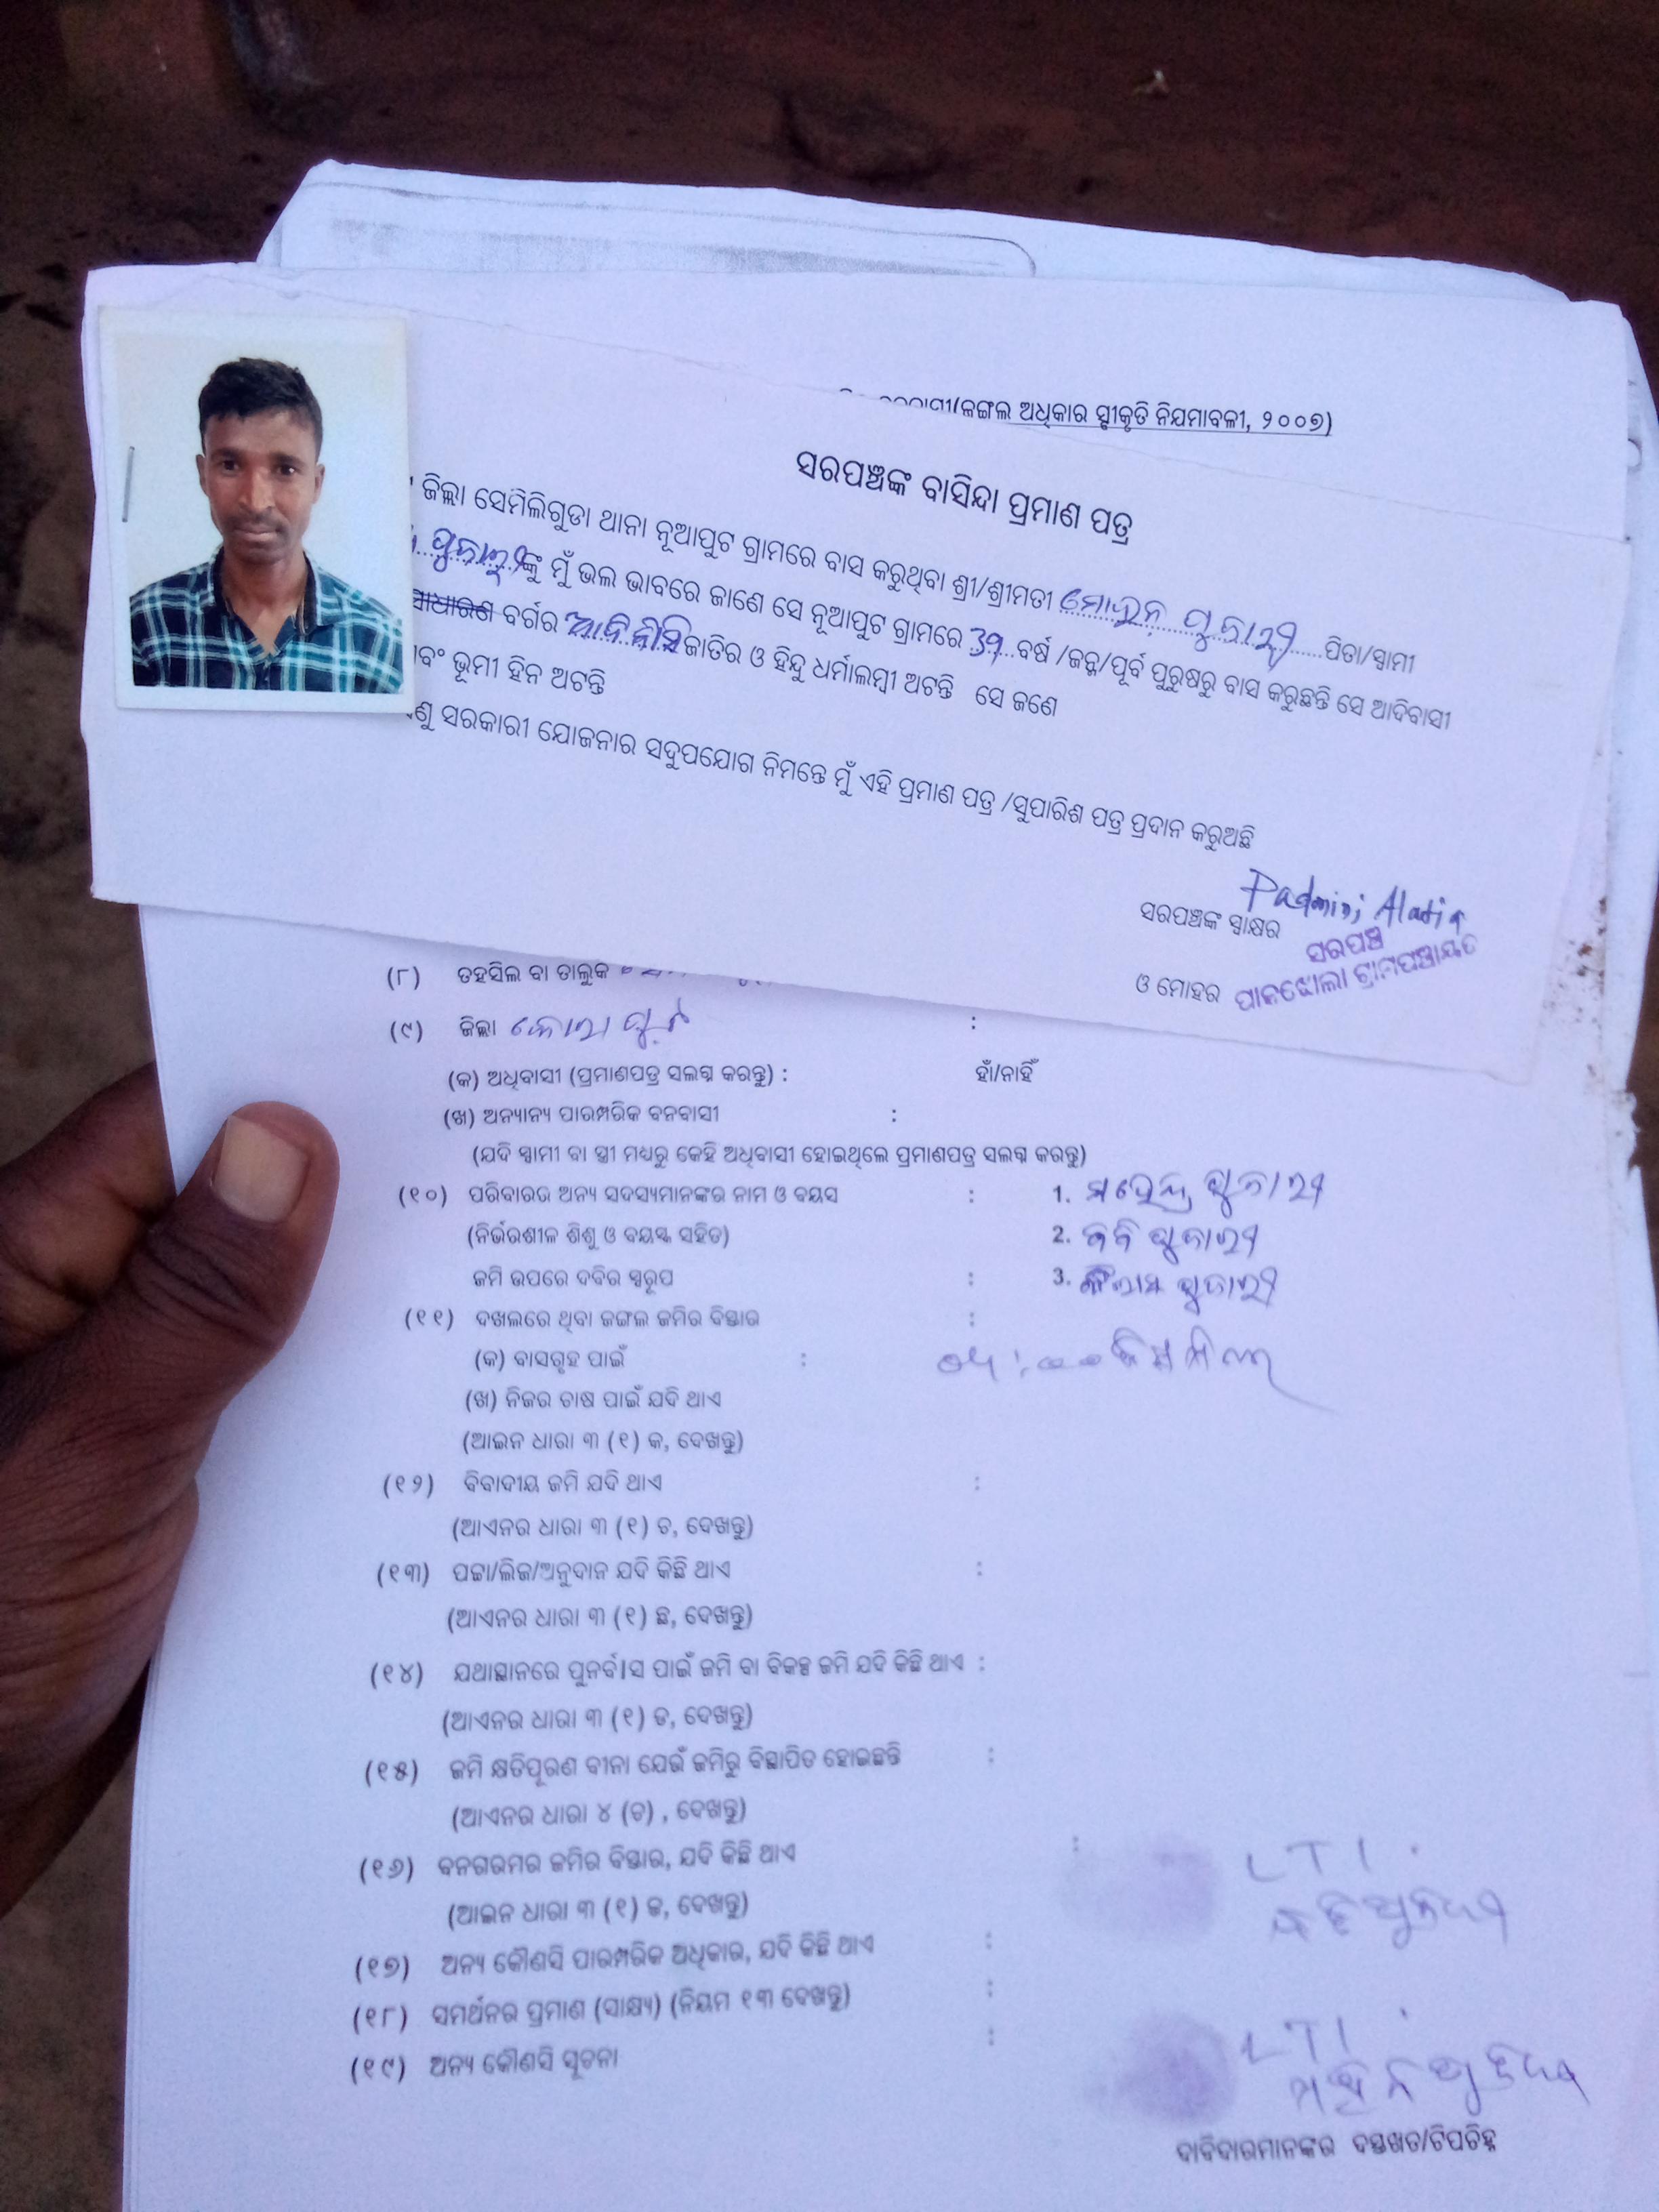 (ଜଙ୍ଗଲ ଅଧିକାର ସ୍ବୀକୃତି ନିୟମାବଳୀ, ୨୦୦୭)
ସରପଞ୍ଚଙ୍କ ବାସିନ୍ଦା ପ୍ରମାଣ ପତ୍ର
ଜିଲ୍ଲା ସେମିଲିଗୁଡା ଥାନା ନୂଆପୁଟ ଗ୍ରାମରେ ବାସ କରୁଥିବା ଶ୍ରୀ/ଶ୍ରୀମତୀ ମୋହନ ପୁଜାରୀ ପିତା/ସ୍ୱାମୀ
ପୁଜାରୀଙ୍କୁ ମୁଁ ଭଲ ଭାବରେ ଜାଣେ ସେ ନୂଆପୁଟ ଗ୍ରାମରେ ୩୨ ବର୍ଷ /ଜନ୍ମ/ପୂର୍ବ ପୁରୁଷରୁ ବାସ କରୁଛନ୍ତି ସେ ଆଦିବାସୀ
ସାଧାରଣ ବର୍ଗର ଜାତିର ଓ ହିନ୍ଦୁ ଧର୍ମାଲମ୍ବୀ ଅଟନ୍ତି ସେ ଜଣେ
ଭୂମୀ ହିନ ଅଟନ୍ତି
ସରକାରୀ ଯୋଜନାର ସଦୁପଯୋଗ ନିମନ୍ତେ ମୁଁ ଏହି ପ୍ରମାଣ ପତ୍ର /ସୁପାରିଶ ପତ୍ର ପ୍ରଦାନ କରୁଅଛି
Padmini
ସରପଞ୍ଚଙ୍କ ସ୍ୱାକ୍ଷର
ସରପଞ୍ଚ
ଓ ମୋହର ଗ୍ରାମପଞ୍ଚାୟତ
(୮) ତହସିଲ ବା ତାଲୁକ
(୯) ଜିଲ୍ଲା କୋରାପୁଟ :
(କ) ଅଧିବାସୀ (ପ୍ରମାଣପତ୍ର ସଲଗ୍ନ କରନ୍ତୁ) : ହଁ/ନାହିଁ
(ଖ) ଅନ୍ୟାନ୍ୟ ପାରମ୍ପରିକ ବନବାସୀ :
(ଯଦି ସ୍ୱାମୀ ବା ସ୍ତ୍ରୀ ମଧ୍ୟରୁ କେହି ଅଧିବାସୀ ହୋଇଥିଲେ ପ୍ରମାଣପତ୍ର ସଲଗ୍ନ କରନ୍ତୁ)
(୧୦) ପରିବାରର ଅନ୍ୟ ସଦସ୍ୟମାନଙ୍କର ନାମ ଓ ବୟସ : 1. ମହେନ୍ଦ୍ର ପୁଜାରୀ
(ନିର୍ଭରଶୀଳ ଶିଶୁ ଓ ବୟସ୍କ ସହିତ) 2. ପୁଜାରୀ
ଜମି ଉପରେ ଦବିର ସ୍ୱରୂପ : 3. ପୁଜାରୀ
(୧୧) ଦଖଲରେ ଥିବା ଜଙ୍ଗଲ ଜମିର ବିସ୍ତାର :
(କ) ବାସଗୃହ ପାଇଁ :
(ଖ) ନିଜର ଚାଷ ପାଇଁ ଯଦି ଥାଏ
(ଆଇନ ଧାରା ୩ (୧) କ, ଦେଖନ୍ତୁ)
(୧୨) ବିବାଦୀୟ ଜମି ଯଦି ଥାଏ :
(ଆଏନର ଧାରା ୩ (୧) ଚ, ଦେଖନ୍ତୁ)
(୧୩) ପଟ୍ଟା/ଲିଜ/ଅନୁଦାନ ଯଦି କିଛି ଥାଏ :
(ଆଏନର ଧାରା ୩ (୧) ଛ, ଦେଖନ୍ତୁ)
(୧୪) ଯଥାସ୍ଥାନରେ ପୁନର୍ବାସ ପାଇଁ ଜମି ବା ବିକଳ୍ପ ଜମି ଯଦି କିଛି ଥାଏ :
(ଆଏନର ଧାରା ୩ (୧) ଡ, ଦେଖନ୍ତୁ)
(୧୫) ଜମି କ୍ଷତିପୂରଣ ବୀନା ଯେଉଁ ଜମିରୁ ବିସ୍ଥାପିତ ହୋଇଛନ୍ତି :
(ଆଏନର ଧାରା ୪ (ଚ) , ଦେଖନ୍ତୁ)
(୧୬) ବନଗରମର ଜମିର ବିସ୍ତାର, ଯଦି କିଛି ଥାଏ : LTI
(ଆଇନ ଧାରା ୩ (୧) ଜ, ଦେଖନ୍ତୁ)
(୧୭) ଅନ୍ୟ କୌଣସି ପାରମ୍ପରିକ ଅଧିକାର, ଯଦି କିଛି ଥାଏ :
(୧୮) ସମର୍ଥନର ପ୍ରମାଣ (ସାକ୍ଷ୍ୟ) (ନିୟମ ୧୩ ଦେଖନ୍ତୁ) :
(୧୯) ଅନ୍ୟ କୌଣସି ସୂଚନା : LTI
ଦାବିଦାରମାନଙ୍କର ଦସ୍ତଖତ/ଟିପଚିହ୍ନ